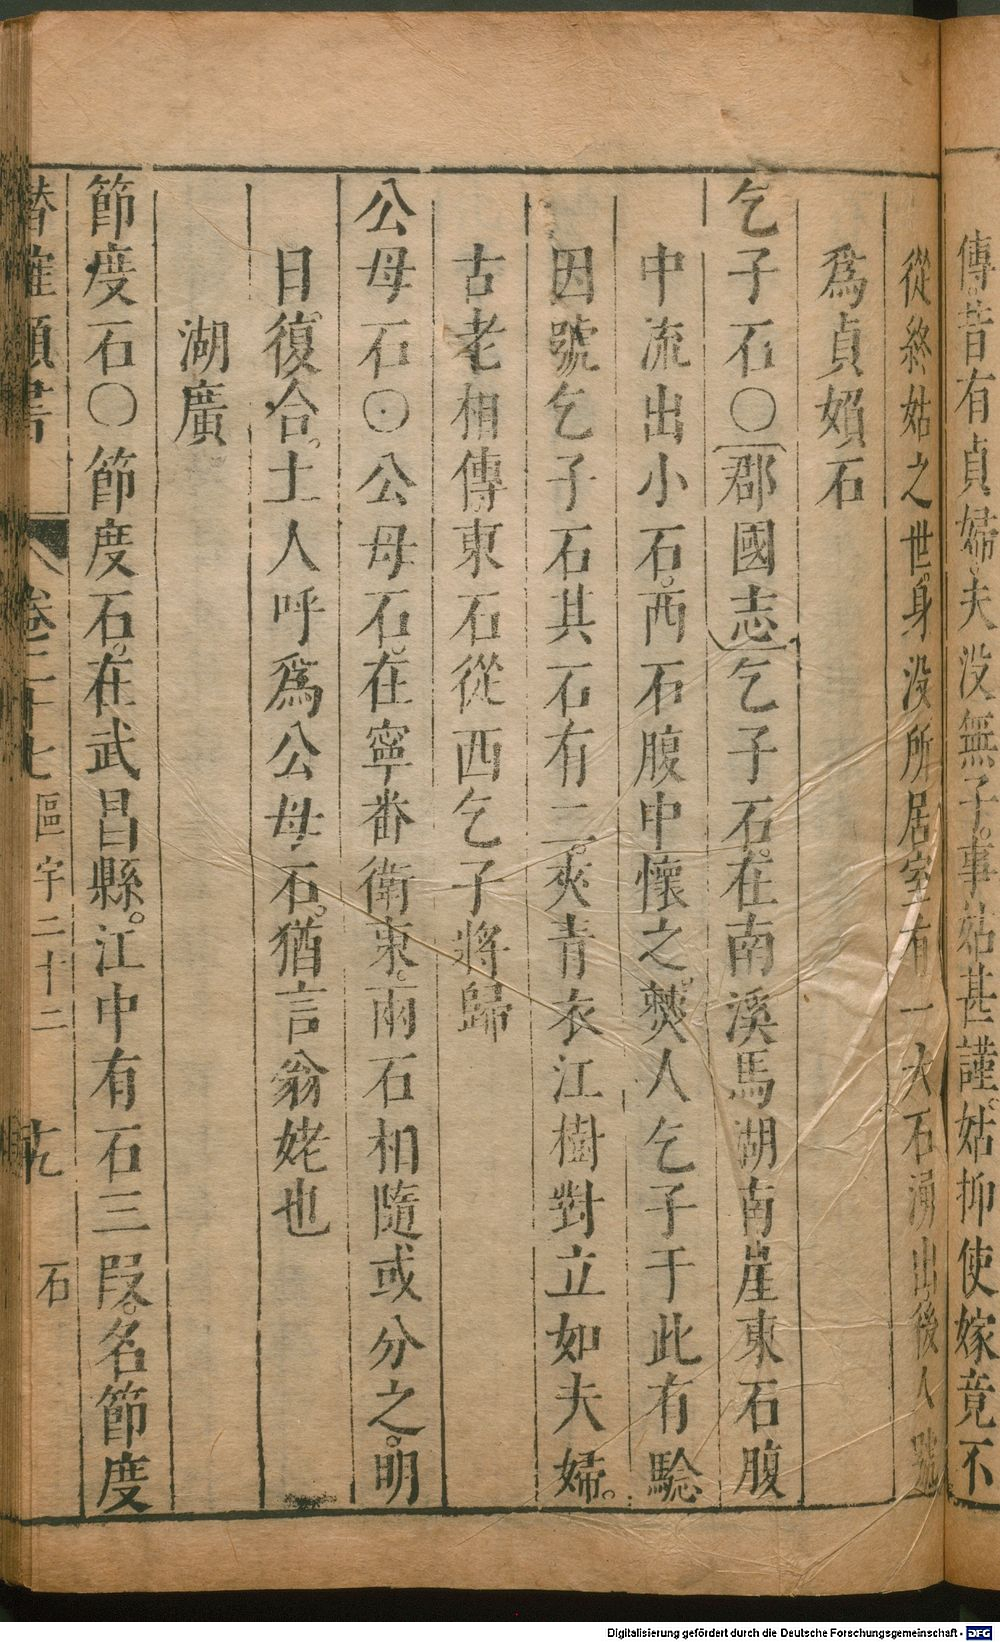 傳。昔有貞婦。夫没無子。事姑甚謹。姑抑使嫁竟不
從終姑之世。身没所居室有一大石湧出。後人號
爲貞婦石
乞子石〇郡國志乞子石。在南溪馬湖南崖東石腹
中流出小石。西石腹中懷之。僰人乞子于此有驗
因號乞子石其石有二。夾青衣江樹對立如夫婦。
古老相傳。東石從西乞子將歸
公母石〇公母石。在寧番衛東。兩石相隨或分之。明
日復合。土人呼爲公母石。猶言翁姥也
湖廣
節度石〇節度石。在武昌縣。江中有石三段。名節度
潛確類書
卷二十七 區宇二十二
石
Digitalisierung gefördert durch die Deutsche Forschungsgemeinschaft - DFG